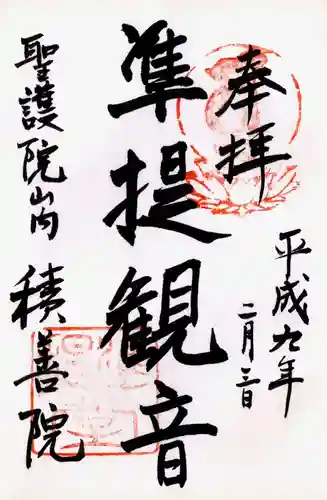 奉拝
平成九年
二月三日
準提観音
聖護院山内
積善院